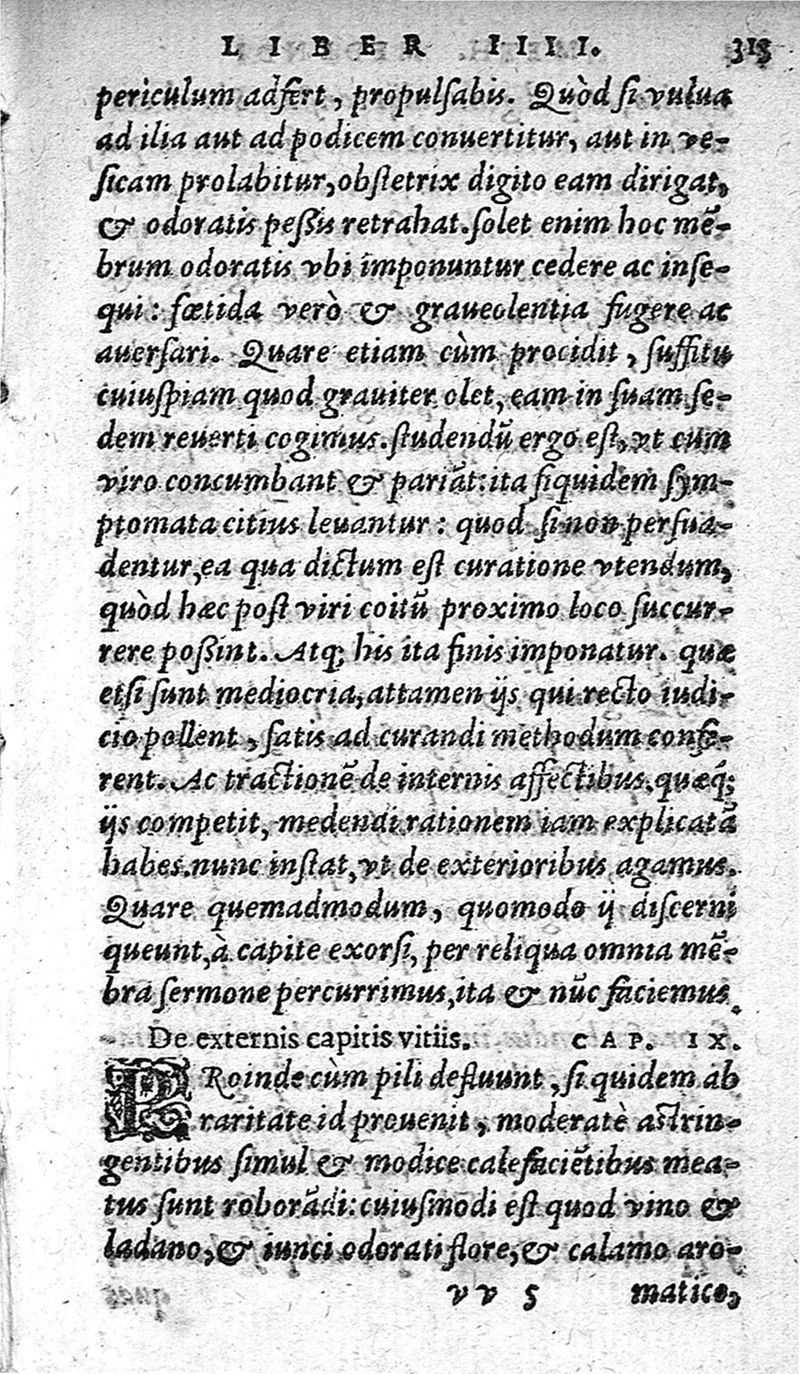 LIBER IIII. 313
periculum adfert, propulsabis. Quòd si vulua
ad ilia aut ad podicem conuertitur, aut in ve-
sicam prolabitur, obstetrix digito eam dirigat,
& odoratis pessis retrahat. solet enim hoc mē-
brum odoratis vbi imponuntur cedere ac inse-
qui: fœtida verò & graueolentia fugere ac
auersari. Quare etiam cùm procidit, suffitu
cuiuspiam quod grauiter olet, eam in suam se-
dem reuerti cogimus. studendū ergo est, vt cum
viro concumbant & pariāt: ita siquidem sym-
ptomata citius leuantur: quod si non persua-
dentur, ea qua dictum est curatione vtendum,
quòd hæc post viri coitū proximo loco succur-
rere possint. Atq; his ita finis imponatur. quæ
etsi sunt mediocria, attamen ijs qui recto iudi-
cio pollent, satis ad curandi methodum confe-
rent. Ac tractionē de internis affectibus, quæq;
ijs competit, medendi rationem iam explicatā
habes. nunc instat, vt de exterioribus agamus.
Quare quemadmodum, quomodo ij discerni
queunt, à capite exorsi, per reliqua omnia mē-
bra sermone percurrimus, ita & nūc faciemus.
De externis capitis vitiis. CAP. IX.
PRoinde cùm pili defluunt, si quidem ab
raritate id prouenit, moderatè astrin-
gentibus simul & modice calefaciētibus mea-
tus sunt roborādi: cuiusmodi est quod vino &
ladano, & iunci odorati flore, & calamo aro-
vv 5 matico,